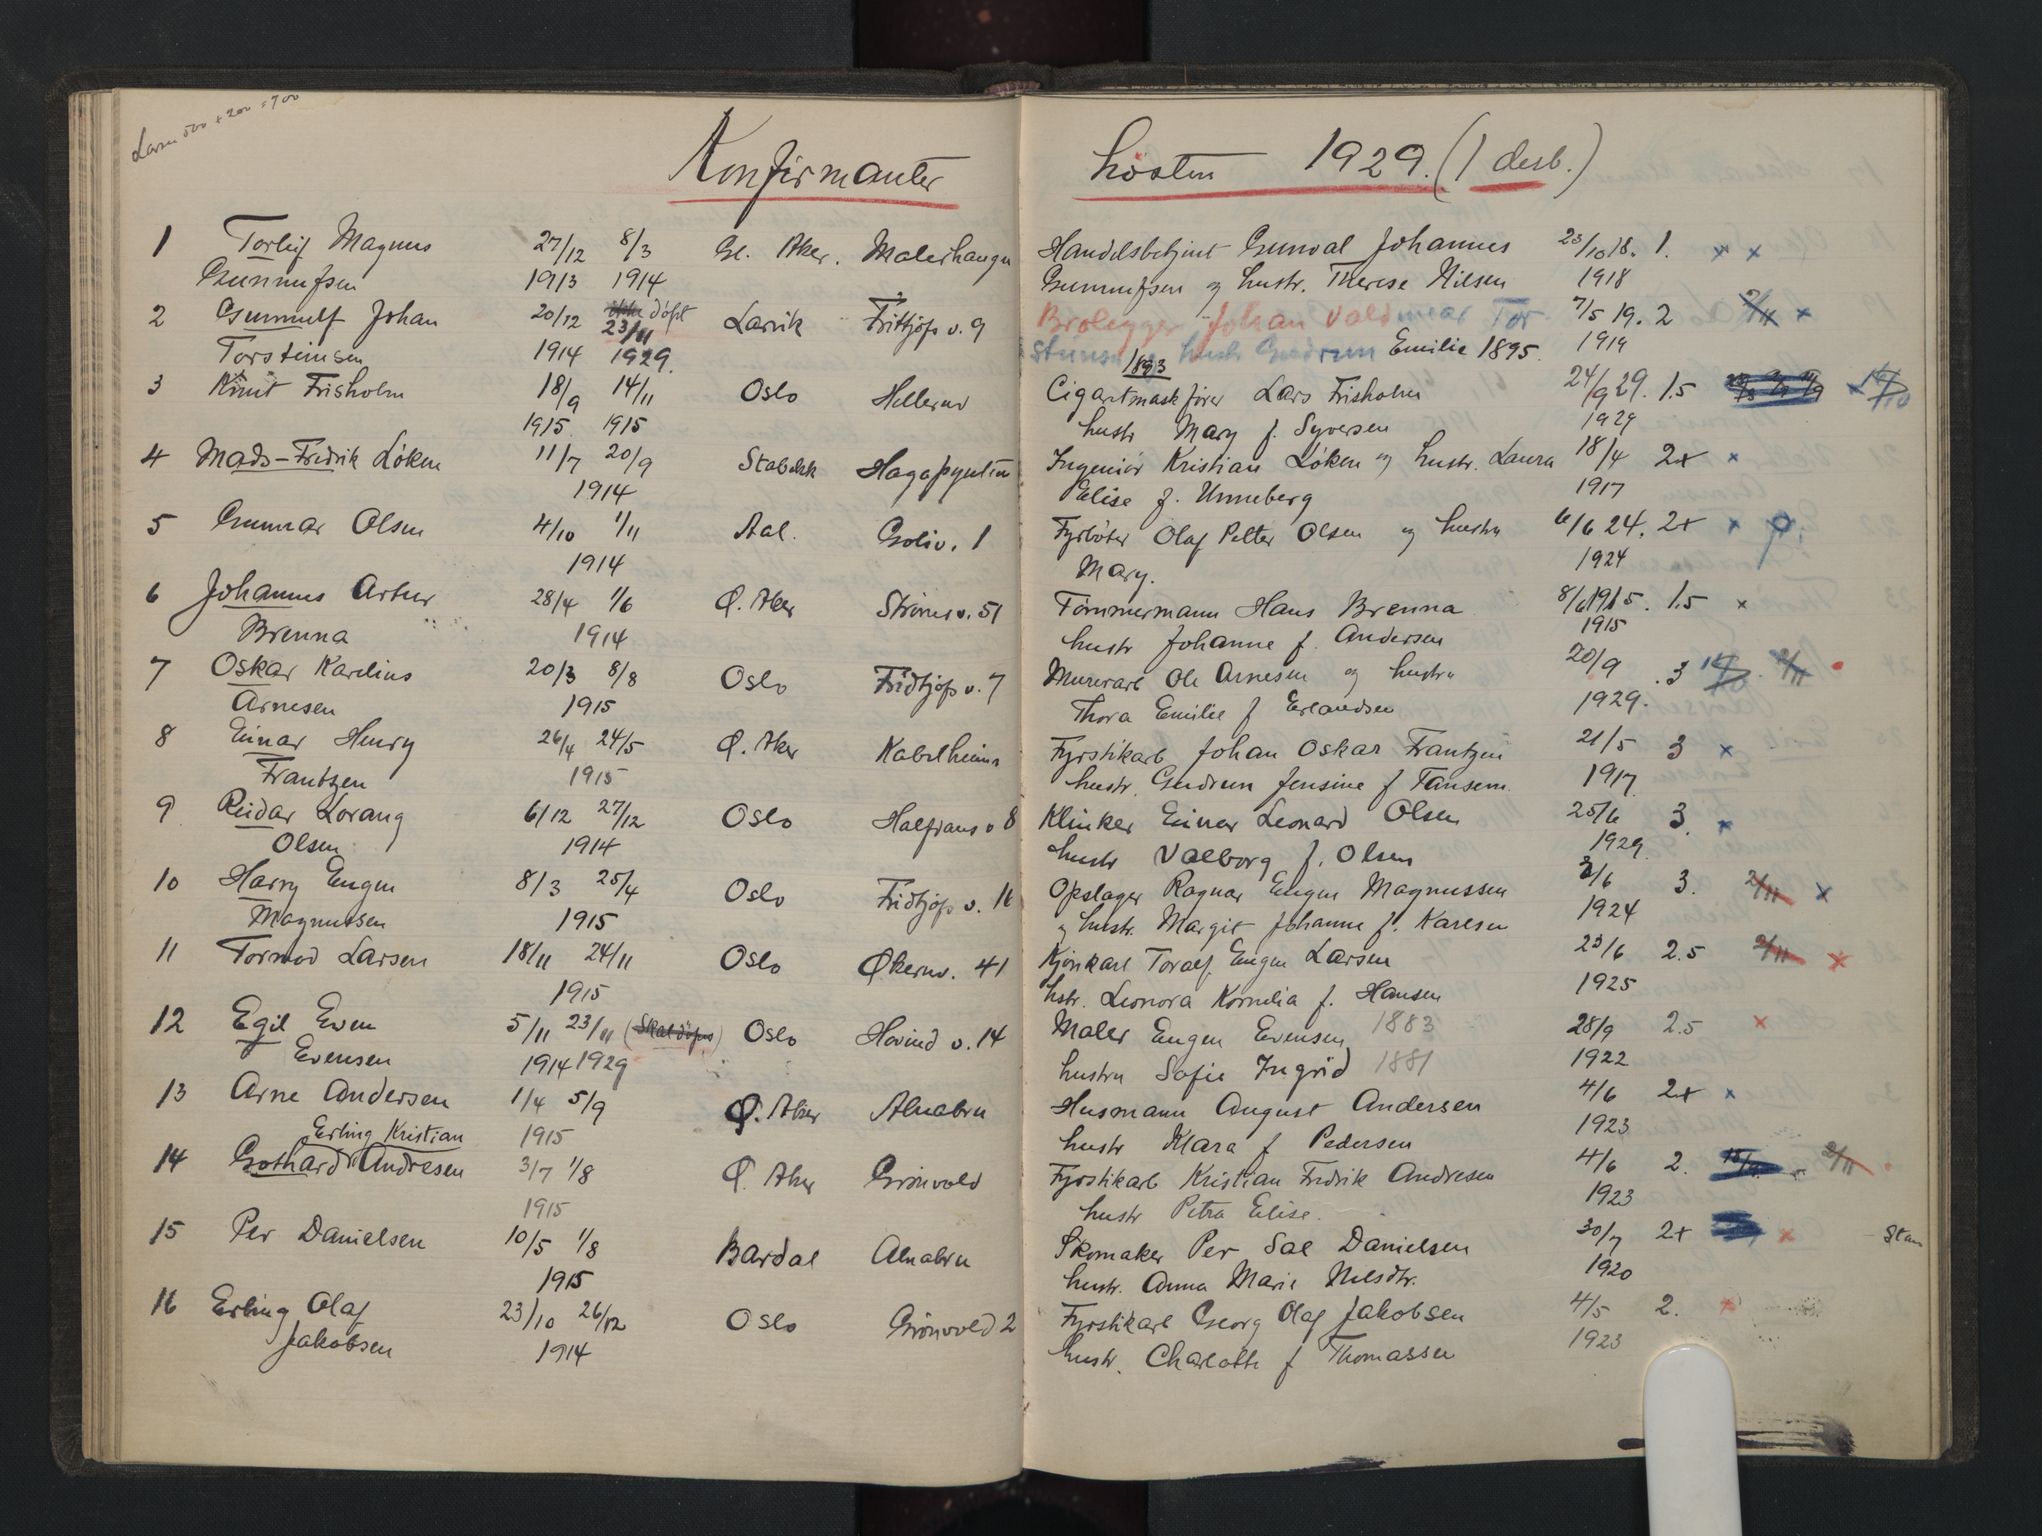 Konfirmanter høsten 1929. (1 desb.)
1 Torleif Magnus 27/12 8/3 Gl. Aker. Malerhaugn Handelsbetjent Gunval Johannes 23/10 18. 1. x x
Gunnufsen 1913 1914 Gunnufsen og hustr. Therese Nilsen 1918
2 Gunnulf Johan 20/12 døpt 23/11 Larvik Fritjofs v. 9 Brolegger Johan Valdemar Tor 7/5 19. 2 2/11 x
Torsteinsen 1914 1929. steinsen hustr Gudrun Emilie 1895. 1919
1893
3 Knut Frisholm 18/9 14/11 Oslo Hellerud Cigaretmaskfører Lars Frisholm 24/9 29. 1.5 x 14/10
1915 1915 hustr Mary f. Syversen 1929
4 Mads-Fredrik Løken 11/7 20/9 Stabekk Hagapynten Ingeniør Kristian Løken og hustr. Laura 18/4 2x x
1914 Elise f. Unneberg 1917
5 Gunnar Olsen 4/10 1/11 Aal. Goliv. 1 Fyrbøter Olaf Petter Olsen og hustru 6/6 24. 2x x
1914 Mary. 1924
6 Johannes Artur 28/4 1/6 Ø. Aker Strømsv. 51 Tømmermann Hans Brenna 8/6 1915. 1.5 x
Brenna 1914 hustr Johanne f. Andersen 1915
7 Oskar Karelius 20/3 8/8 Oslo Fridtjofs v. 7 Murerarb Ole Arnesen og hustru 20/9 .3 14/10 2/11
Arnesen 1915 Thora Emilie f Erlandsen 1929.
8 Einar Henry 26/4 24/5 Ø. Aker Kabelheimen Fyrstikarb Johan Oskar Frantzen 21/5 3 x
Frantzen 1915 hustr. Gudrun Jensine f Fansem. 1917
9 Reidar Lorang 6/12 27/12 Oslo Halfdans v 8 Klinker Einar Leonard Olsen 25/6 3. x
Olsen 1914 hustr Valborg f. Olsen 1929.
10 Harry Eugen 8/3 25/4 Oslo Fridtjofs v. 16 Opslager Ragnar Eugen Magnussen 2/6 3. 2/11 x
Magnussen 1915 og hustr. Margit Johanne f. Karlsen 1924
11 Tormod Larsen 18/11 24/11 Oslo Økernv. 41 Kjørekarl Toralf Eugen Larsen 23/6 2.5 2/11 x
1915 hstr. Leonora Kornelia f. Hansen 1925
12 Egil Even 5/11 23/11 (Skal døpes) Oslo Hovind v. 14 Maler Eugen Evensen 1883 28/9 2.5 x
Evensen 1914 1929 hustru Sofie Ingrid 1881 1922
13 Arne Andersen 1/4 5/9 Ø. Aker Alnabru Husmann August Andersen 4/6 2x x
1915 hustr Klara f Pedersen 1923
Erling Kristian
14 Gothard Andresen 3/7 1/8 Ø. Aker Grønvold Fyrstikarb Kristian Fredrik Andresen 4/6 2. 2/11
1915 hustr Petra Elise. 1923
15 Per Danielsen 10/5 1/8 Bardal Alnabru Skomaker Per Sal Danielsen 30/7 2x x
1915 hustr. Anna Marie Nilsdtr. 1920
16 Erling Olaf 23/10 26/12 Oslo Grønvold 2 Fyrstikarb Georg Olaf Jakobsen 4/5 2. x
Jakobsen 1914 hustr. Charlotte f Thomassen 1923